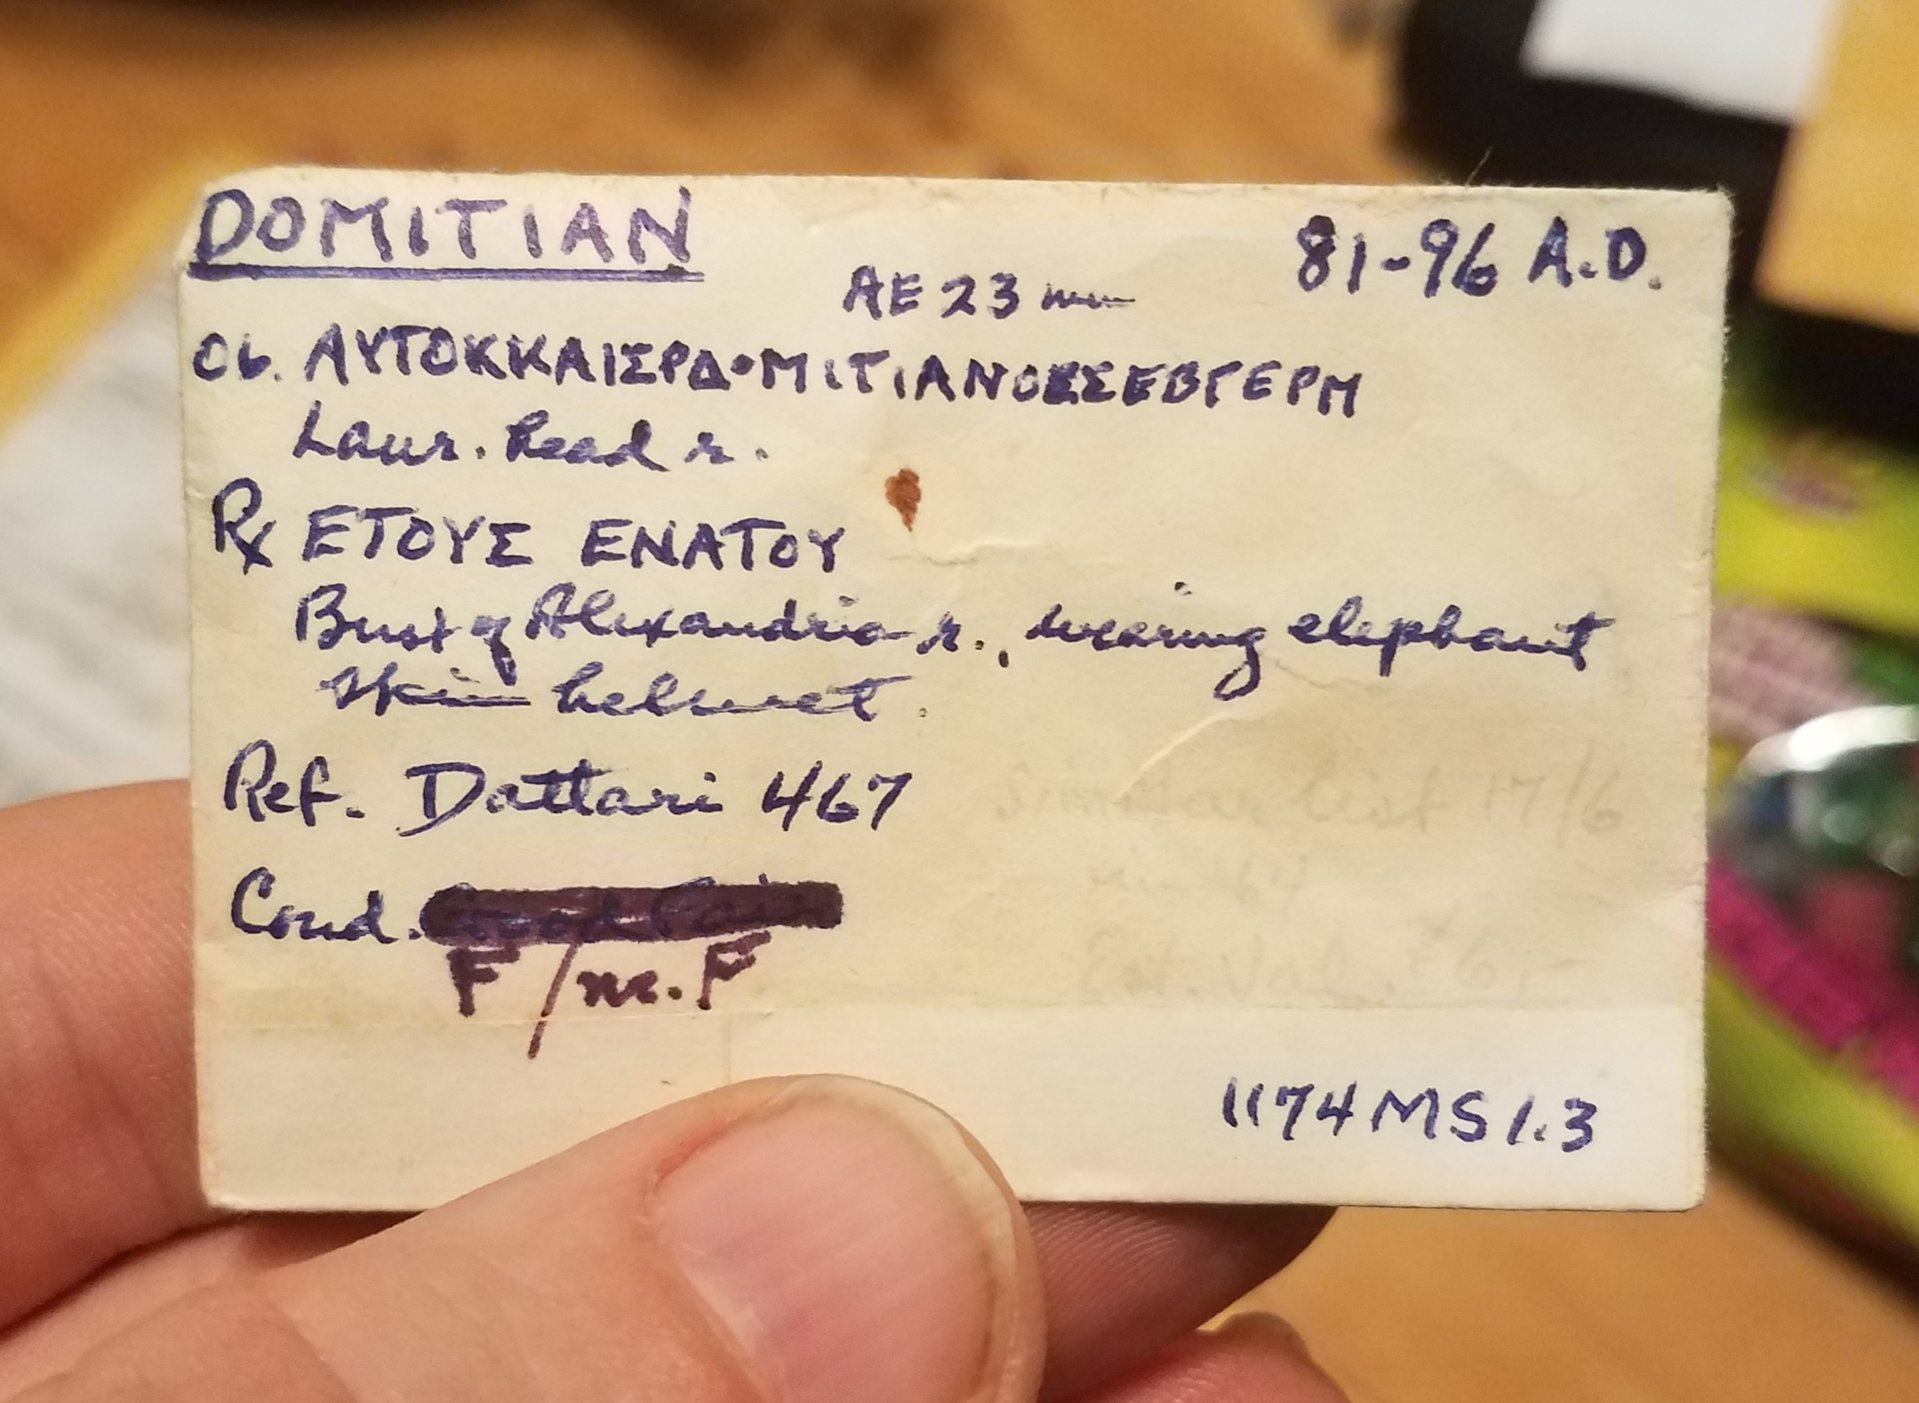 DOMITIAN
81-96 A.D.
AE 23 mm
Ob. ΑΥΤΟΚΚΑΙΣΡΔΟΜΙΤΙΑΝΟΣΣΕΒΓΕΡΜ
Laur. head r.
Rx ΕΤΟΥΣ ΕΝΑΤΟΥ
Bust of Alexandria r., wearing elephant
skin helmet.
Ref. Dattari 467
Cond. Good Fair
F/nr. F
1174MS1.3